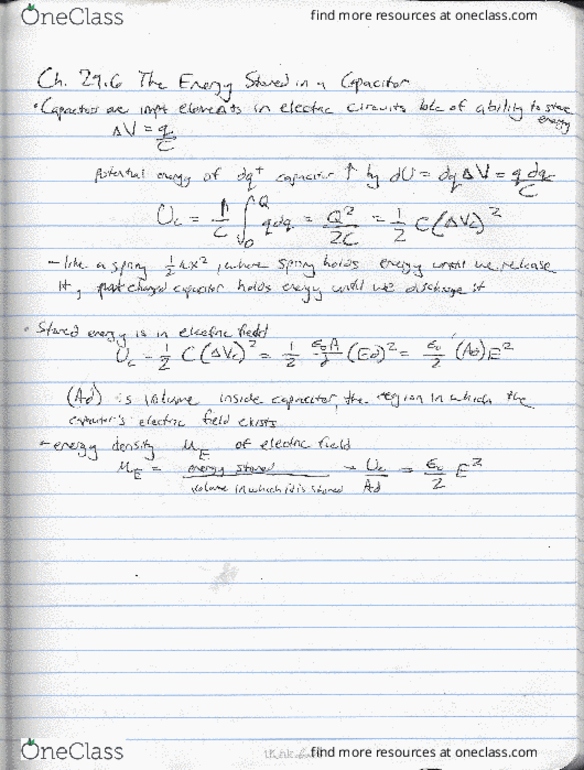 OneClass find more resources at oneclass.com
Ch. 29.6 The Energy Stored in a Capacitor
• Capacitors are impt elements in electric circuits b/c of ability to store energy
ΔV = q/C
Potential energy of dq+ capacitor ↑ by dU = dq ΔV = q dq/C
Uc = 1/C ∫₀^Q q dq = Q²/2C = 1/2 C(ΔVc)²
- like a spring 1/2 kx², where spring holds energy until we release
it, charged capacitor holds energy until we discharge it
• Stored energy is in electric field
Uc = 1/2 C(ΔVc)² = 1/2 ε₀A/d (Ed)² = ε₀/2 (Ad)E²
(Ad) is volume inside capacitor, the region in which the
capacitor's electric field exists
- energy density uE of electric field
uE = energy stored / volume in which it is stored = Uc/Ad = ε₀/2 E²
OneClass find more resources at oneclass.com